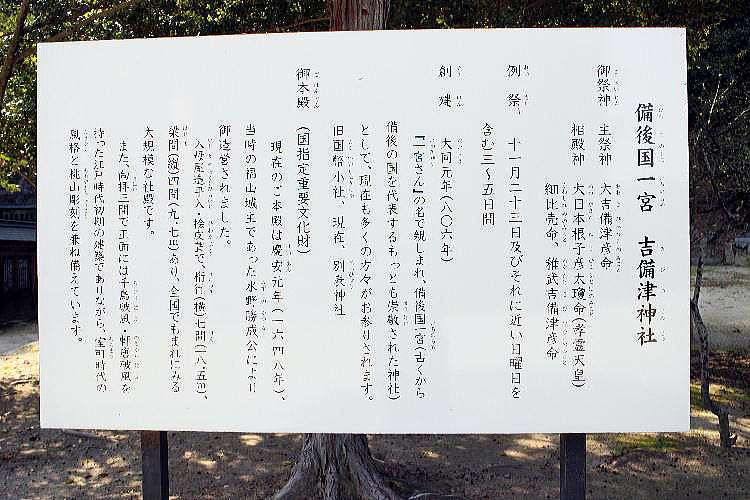 備後国一宮 吉備津神社
御祭神 主祭神 大吉備津彦命
相殿神 大日本根子彦太瓊命(孝霊天皇)
細比売命、稚武吉備津彦命
例祭、十一月二十三日及びそれに近い日曜日を
含む三〜五日間
創建 大同元年(八〇六年)
『一宮さん』の名で親しまれ、備後国一宮(古くから
備後の国を代表するもっとも崇敬された神社)
として、現在も多くの方々がお参りされます。
旧国幣小社、現在、別表神社
御本殿 (国指定重要文化財)
現在のご本殿は慶安元年(一六四八年)、
当時の福山城主であった水野勝成公により
御造営されました。
入母屋造平入・桧皮葺で、桁行(横)七間(一八.五m)、
梁間(縦)四間(九.七m)あり、全国でもまれにみる
大規模な社殿です。
また、向拝三間で正面には千鳥破風、軒唐破風を
持った江戸時代初期の建築でありながら、室町時代の
風格と桃山彫刻を兼ね備えています。